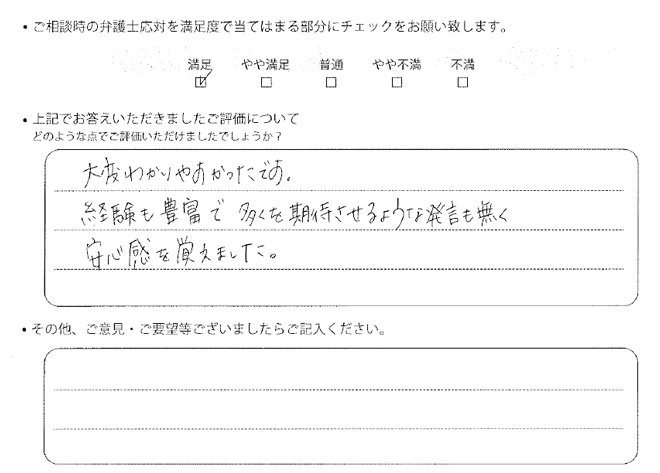 ・ご相談時の弁護士応対を満足度で当てはまる部分にチェックをお願い致します。
満足 やや満足 普通 やや不満 不満
☑ □ □ □ □
・上記でお答えいただきましたご評価について
どのような点でご評価いただけましたでしょうか？
大変わかりやすかったです。
経験も豊富で 多くを期待させるような発言も無く
安心感を覚えました。
・その他、ご意見・ご要望等ございましたらご記入ください。